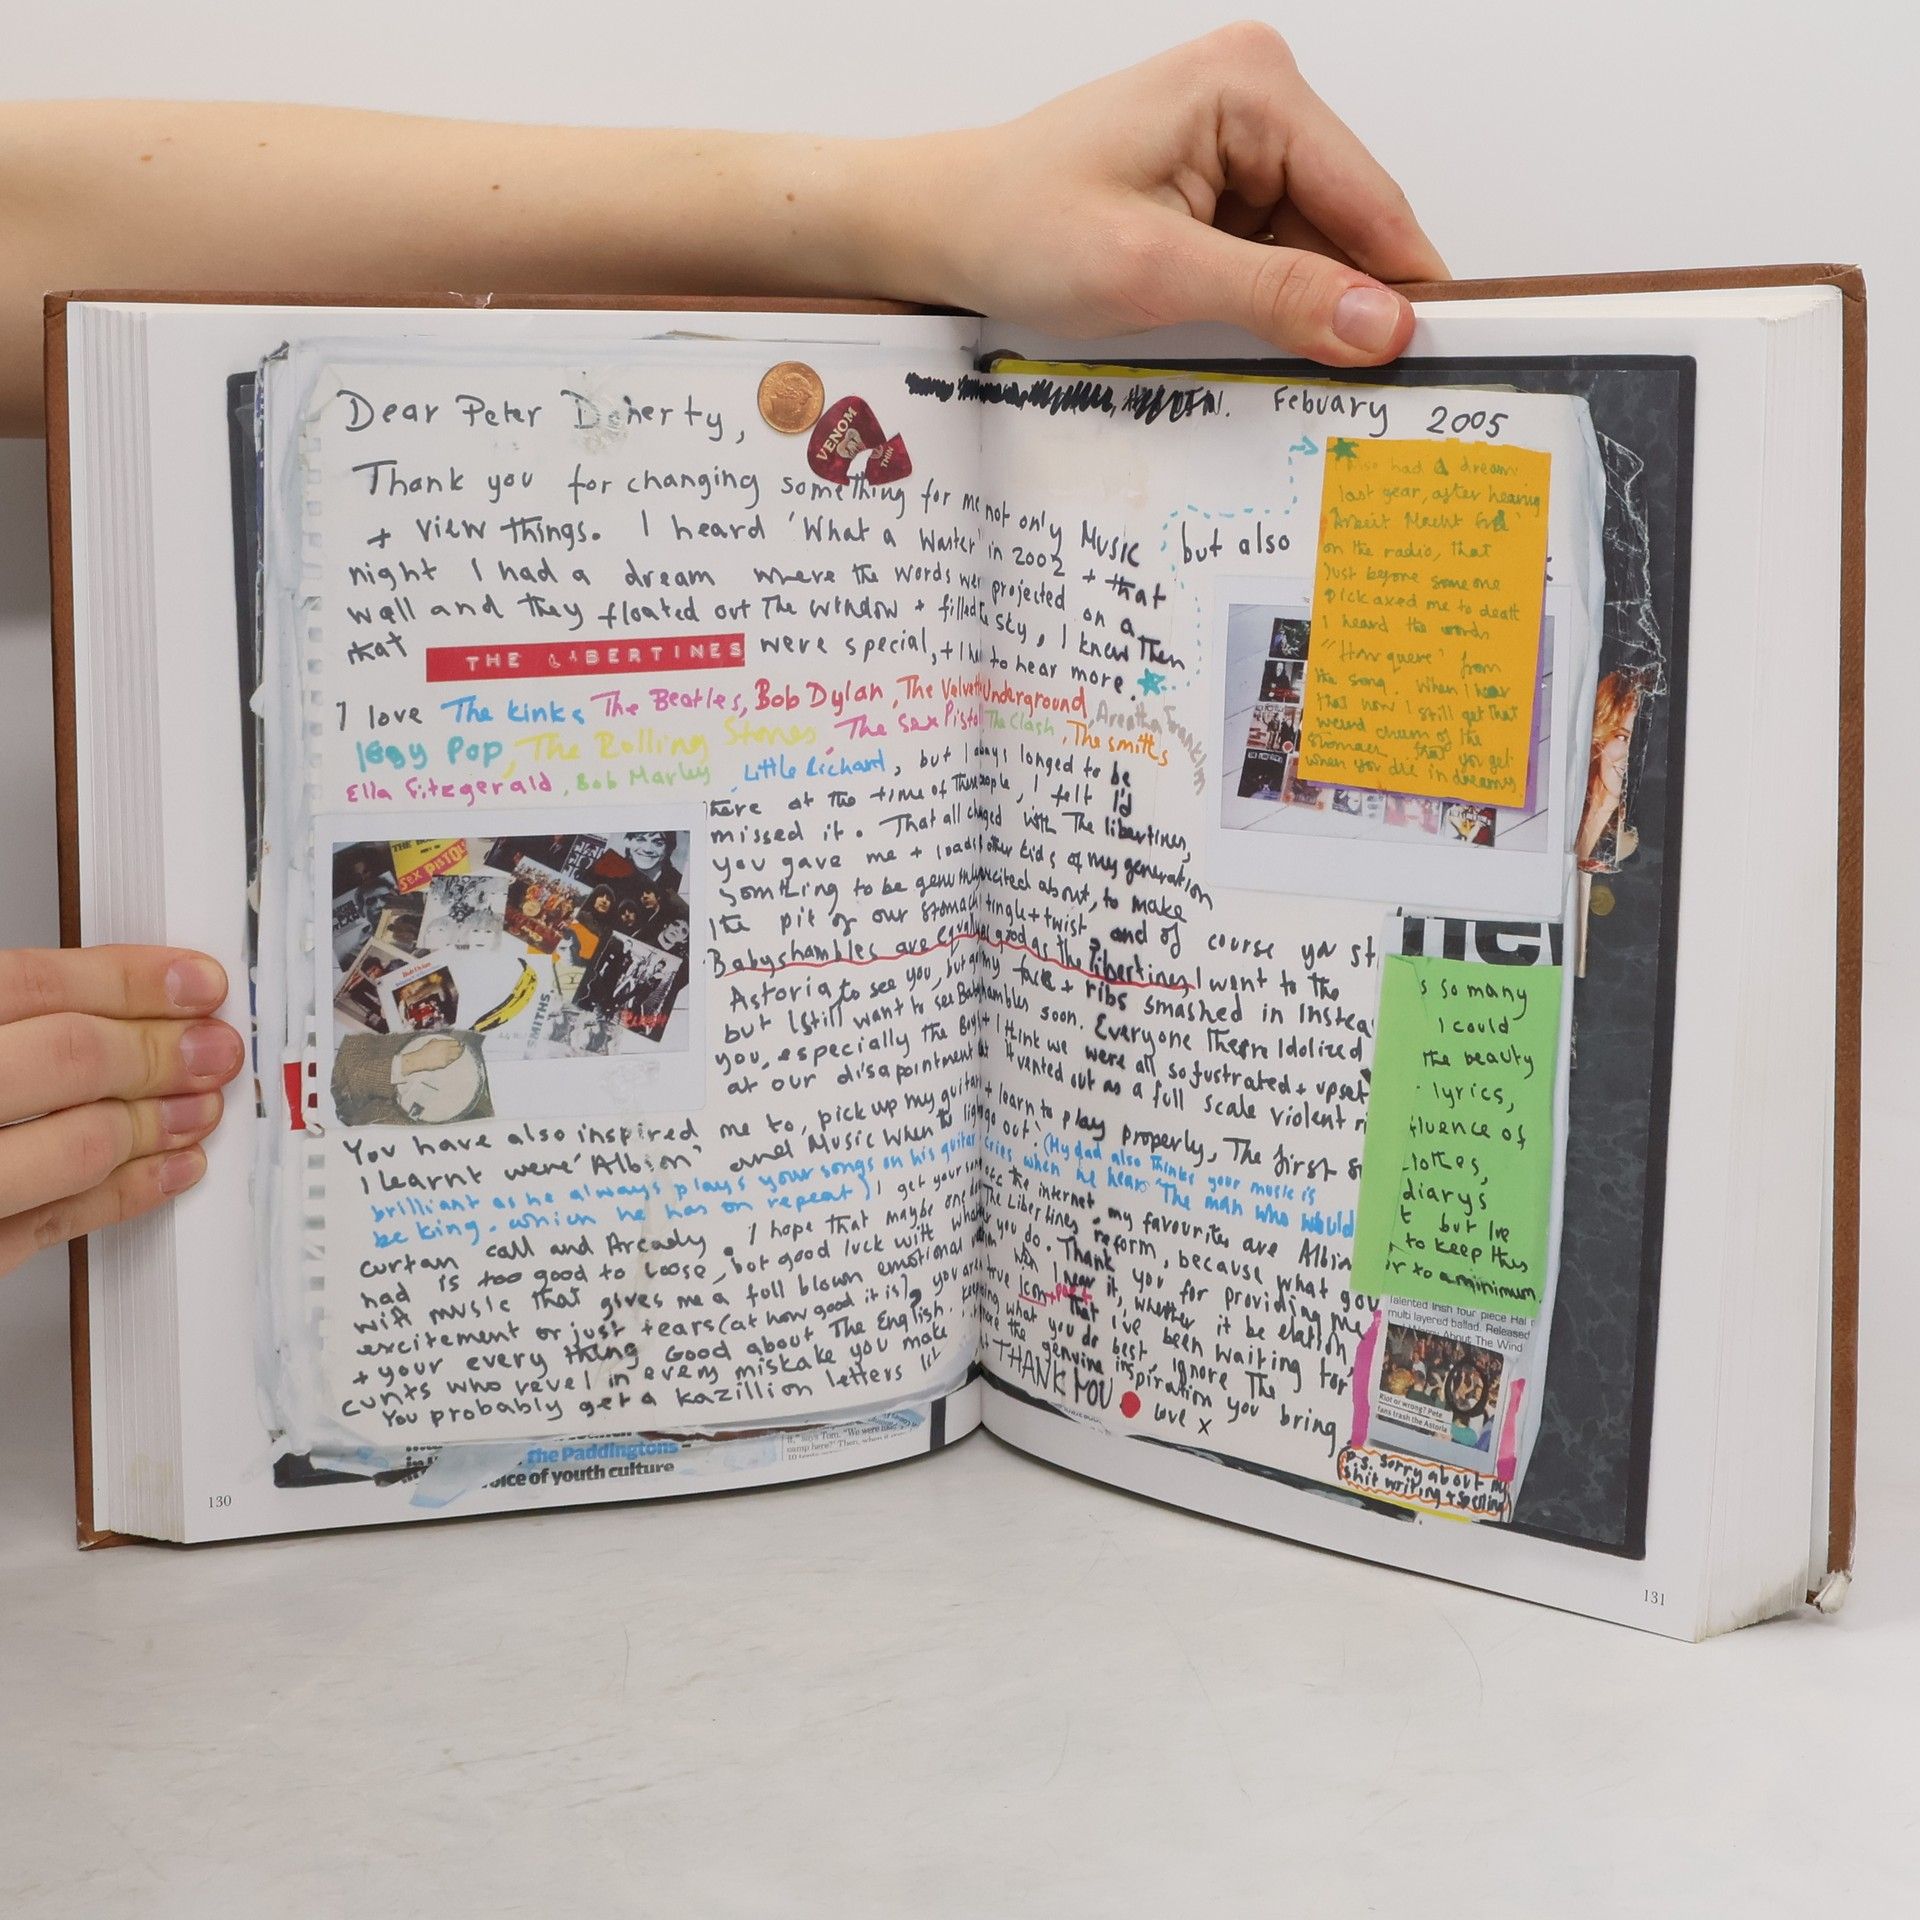 Dear Peter Doherty,
VENOM
THIN
Febuary 2005
Thank you for changing something for me not only Music but also
+ view things. I heard 'What a Waster' in 2002 + that
night I had a dream where the words wer projected on a
wall and they floated out the window + filled the sky, I knew Then
that THE LIBERTINES were special, + I had to hear more.
I love The Kinks The Beatles, Bob Dylan, The Velvet Underground, Areatha Franklin
Iggy Pop, The Rolling Stones, The Sex Pistols The Clash, The smiths
Ella Fitzgerald, Bob Marley, Little Richard, but I always longed to be
there at the time of These people, I felt I'd
missed it. That all changed with The libertines,
you gave me + loads other kids of my generation
somthing to be genuinly excited about, to make
the pit of our stomach tingle + twist, and of course you st
Babyshambles are equally as good as the libertines, I went to the
Astoria to see you, but got my face + ribs smashed in Instea
but I still want to see Babyshambles soon. Everyone There Idolized
you, especially the Boys + I think we were all so fustrated + upset
at our disapointment it vented out as a full scale violent ri
You have also inspired me to, pick up my guitar + learn to play properly, The first s
I learnt were 'Albion' and Music When the lights go out! (My dad also thinks your music is
brilliant as he always plays your songs on his guitar cries when he hears 'The man who would
be king. which he has on repeat) I get your songs off the internet, my favourites are Albion
curtan call and Arcady. I hope that maybe one day The Libertines reform, because what you
had is too good to loose, but good luck with whatever you do. Thank you for providing me
with music that gives me a full blown emotional when I hear it, whether it be elation,
excitement or just tears (at how good it is), you are a true Icon + poet That I've been waiting for
+ your every thing Good about The English. Keep doing what you do best, ignore The
cunts who revel in every mistake you make
You probably get a kazillion letters THANK YOU love x
the genuine inspiration you bring
Also had a dream
last year, after hearing
'Arbeit Macht Frei'
on the radio, that
Just before someone
pick axed me to death
I heard the words
"Her quere" from
the song. When I hear
that now I still get that
weird churn of the
stomach that you get
when you die in dreams
s so many
I could
the beauty
lyrics,
fluence of
lothes,
diarys
t but Ive
to keep this
r to a minimum
Talented Irish four piece Hal
multi layered ballad. Released
Worry About The Wind
SEX PISTOLS
SMITHS
Riot or wrong? Pete
fans trash the Astoria
P.S. Sorry about my
shit writing + spelling
the Paddingtons –
voice of youth culture
it," says Tom. "We were
camp here?' Then, when
130
131